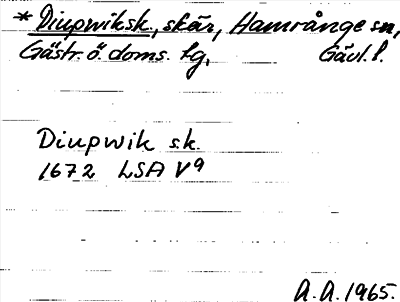 *Diupwiksk., skär, Hamrånge sn,
Gästr. ö. doms. tg, Gävl. l.
Diupwik sk.
1672 LSA V9
A. A. 1965.